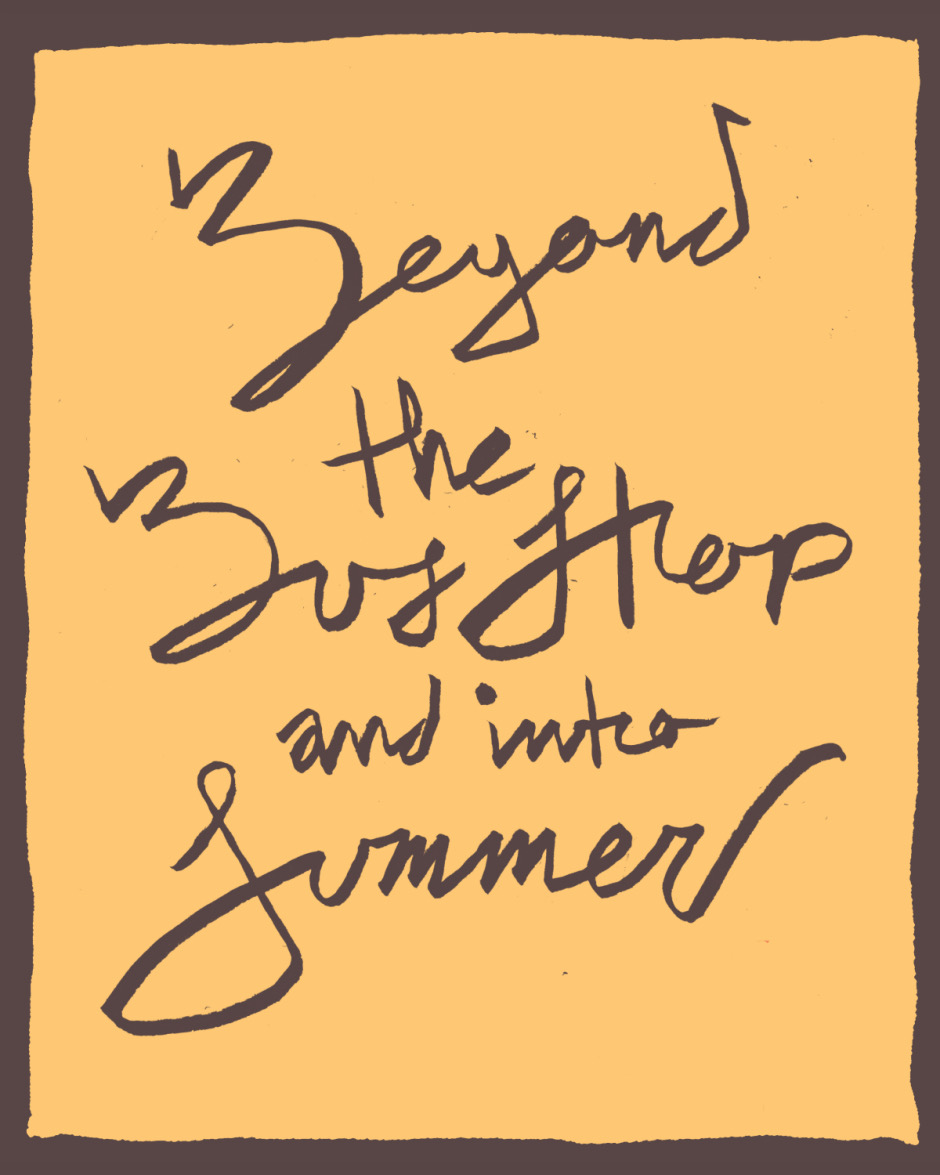 Beyond
the
Bus Stop
and into
Summer